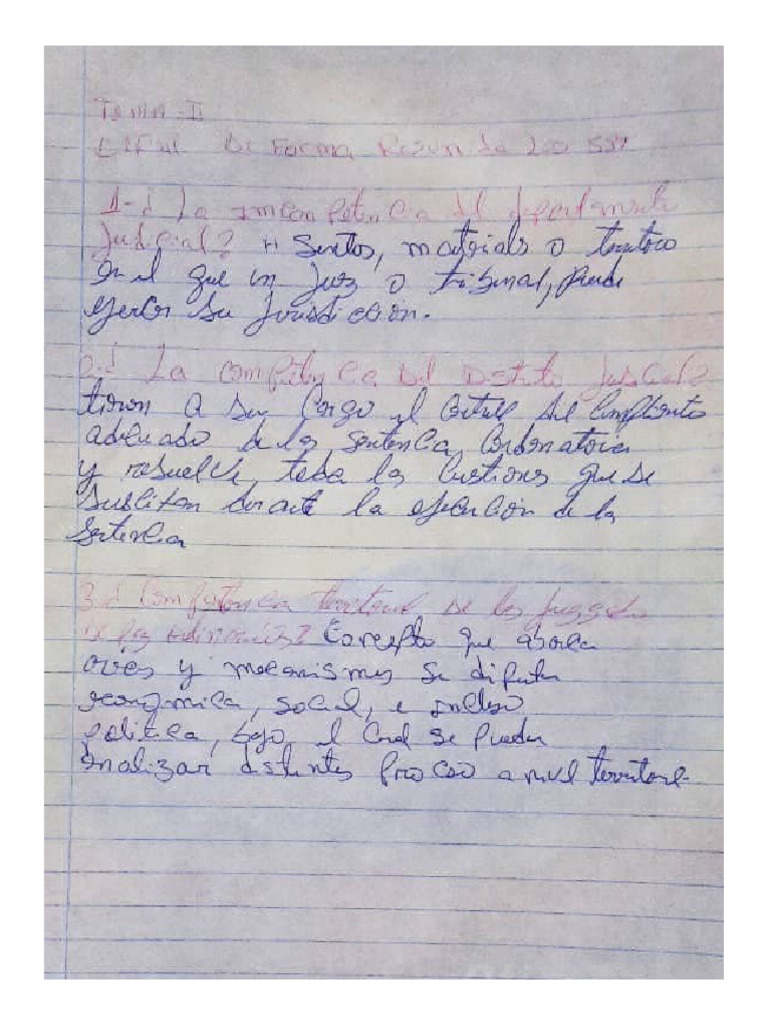 Tema - II
De Forma Resumida
1-¿ La Incompetencia del departamento
Judicial? Sentos, materials o territorio
en el que un Juez o tribunal, puede
ejercer su Jurisdiccion.
2-¿ La competencia Del Distrito Judicial?
tienen A su Cargo el Control del Cumplimiento
adecuado de las sentencia Condenatorias
y resuelve, toda las Custiones que se
Susciten durante la ejecución de la
Sentencia
3-¿ Competencia territorial De los Juzgados
De paz Ordinarios? Concepto que aborca
y mecanismos se
economica, social, e incluso
politica, bajo el Cual se pueden
Analizar distintos proceso a nivel territorial.